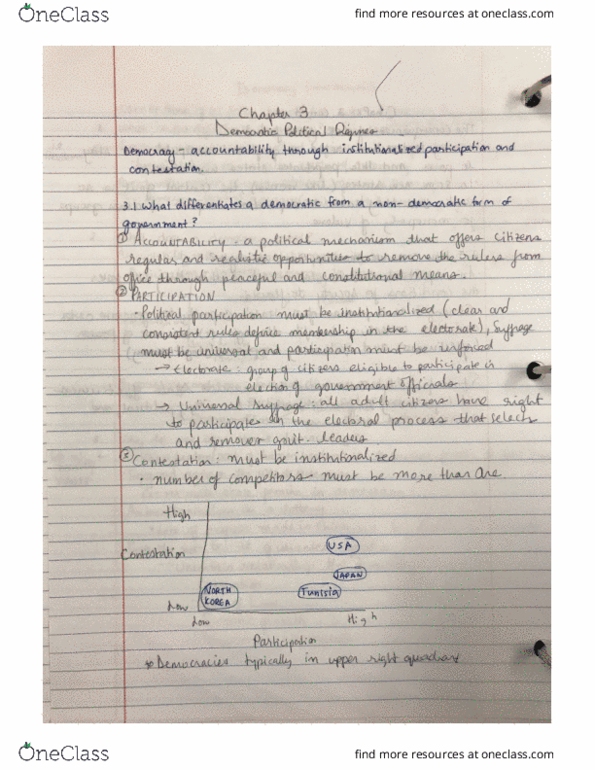 OneClass
find more resources at oneclass.com
Chapter 3
Democratic Political Regimes
Democracy - accountability through institutionalized participation and
contestation.
3.1 What differentiates a democratic from a non-democratic form of
government?
① ACCOUNTABILITY - a political mechanism that offers citizens
regular and realistic opportunities to remove the rulers from
office through peaceful and constitutional means.
② PARTICIPATION
· Political participation must be institutionalized (clear and
consistent rules define membership in the electorate), Suffrage
must be universal and participation must be
→ Electorate: group of citizens eligible to participate in
election of government officials
→ Universal suffrage: all adult citizens have right
to participate in the electoral process that selects
and removes gov't. leaders
③ Contestation: must be institutionalized
· number of competitors must be more than one.
High
Contestation
USA
JAPAN
NORTH
KOREA
Tunisia
Low
Low
High
Participation
* Democracies typically in upper right quadrant
OneClass
find more resources at oneclass.com